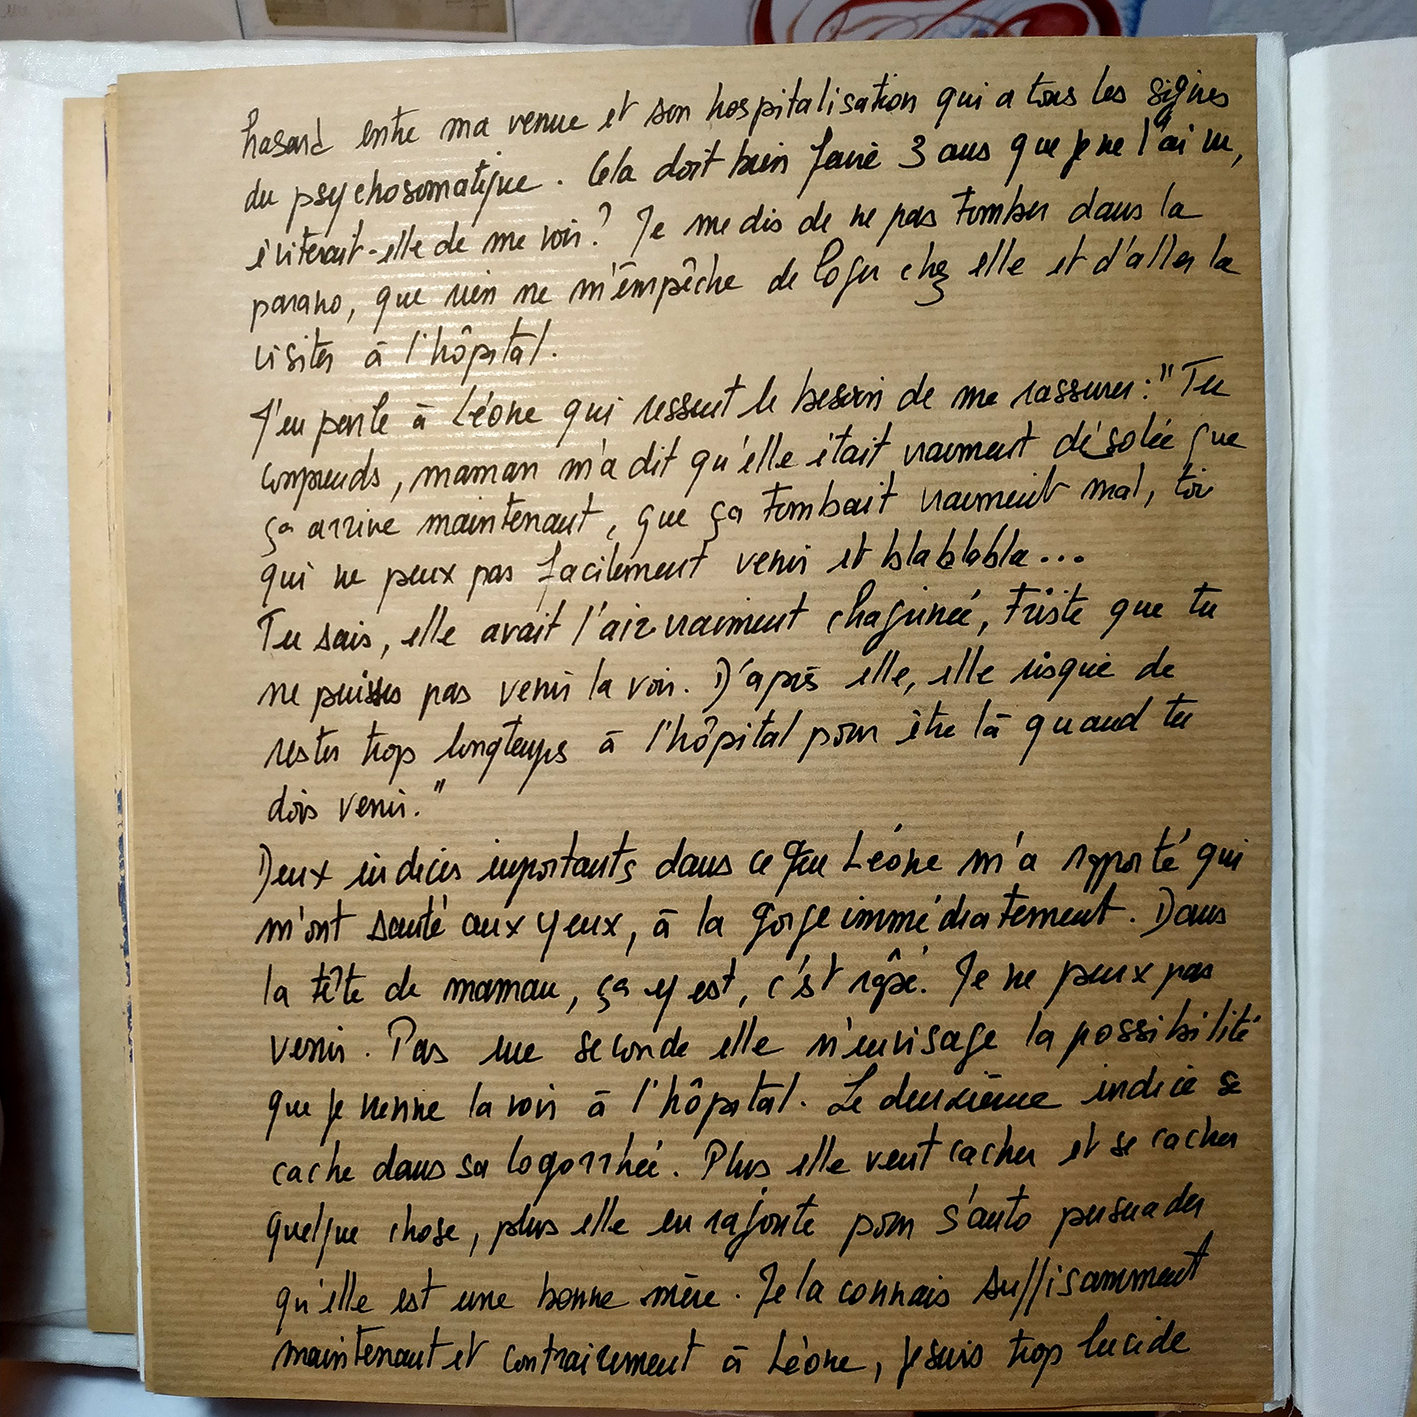 hasard entre ma venue et son hospitalisation qui a tous les signes
du psychosomatique. Cela doit bien faire 3 ans que je ne l'ai vu,
éviterait-elle de me voir? Je me dis de ne pas tomber dans la
parano, que rien ne m'empêche de loger chez elle et d'aller la
visiter à l'hôpital.
J'en parle à Léone qui ressent le besoin de me rassurer: "Tu
comprends, maman m'a dit qu'elle était vraiment désolée que
ça arrive maintenant, que ça tombait vraiment mal, toi
qui ne peux pas facilement venir et blablabla...
Tu sais, elle avait l'air vraiment chagrinée, triste que tu
ne puisses pas venir la voir. D'après elle, elle risque de
rester trop longtemps à l'hôpital pour être là quand tu
dois venir."
Deux indices importants dans ce que Léone m'a rapporté qui
m'ont sauté aux yeux, à la gorge immédiatement. Dans
la tête de maman, ça y est, c'est râpé. Je ne peux pas
venir. Pas une seconde elle n'envisage la possibilité
que je vienne la voir à l'hôpital. Le deuxième indice se
cache dans sa logorrhée. Plus elle veut cacher et se cacher
quelque chose, plus elle en rajoute pour s'auto persuader
qu'elle est une bonne mère. Je la connais suffisamment
maintenant et contrairement à Léone, je suis trop lucide